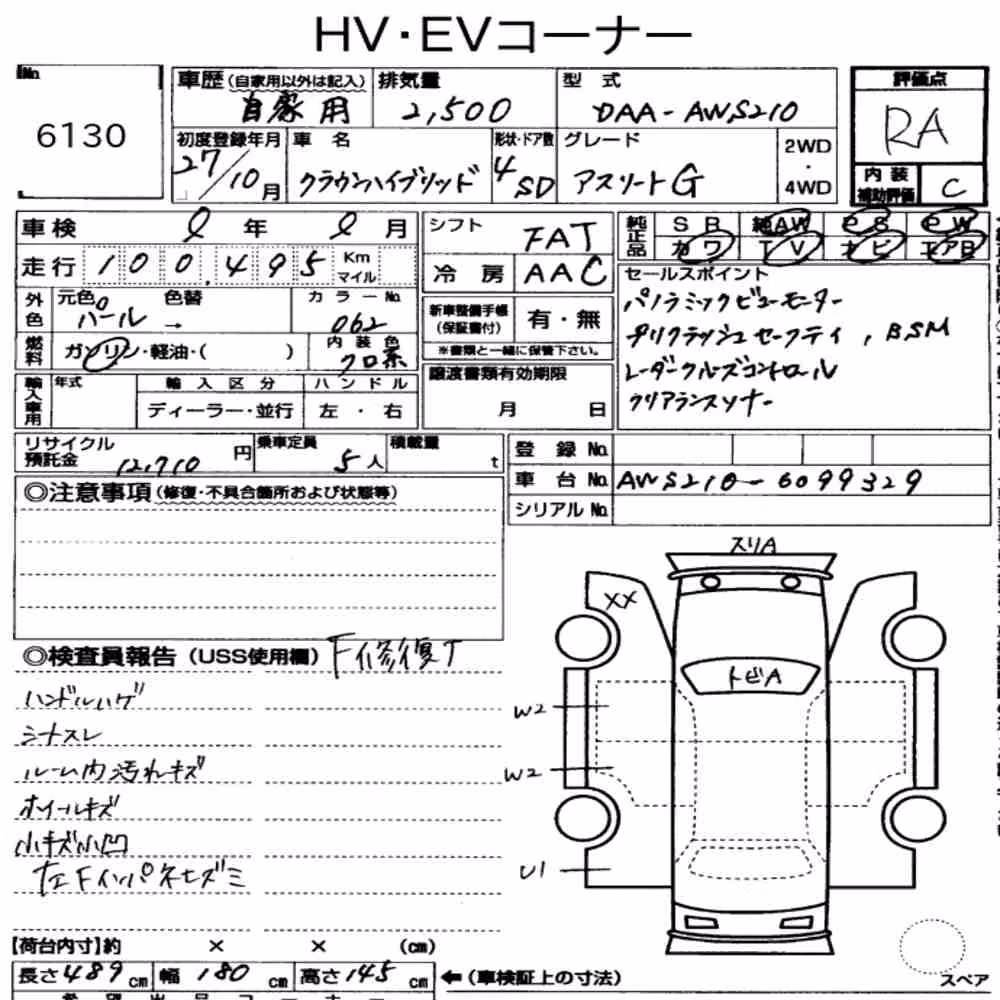 HV・EVコーナー
No. 6130
車歴(自家用以外は記入) 自家用
排気量 2,500
型式 DAA-AWS210
評価点 RA
内装補助評価 C
初度登録年月 27/10月
車名 クラウンハイブリッド
形状・ドア数 4 SD
グレード アスリートG
2WD・4WD
車検 年 月
走行 100,495 Km マイル
シフト FAT
冷房 AAC
純正品 SR 純AW PS PW
カワ TV ナビ エアB
外色 元色 パール 色替 → カラーNo. 062
燃料 ガソリン・軽油・( ) 内装色 クロ系
新車整備手帳(保証書付) 有・無
※書類と一緒に保管下さい。
セールスポイント
パノラミックビューモニター
プリクラッシュセーフティ, BSM
レーダークルーズコントロール
クリアランスソナー
輸入車用 年式 輸入区分 ディーラー・並行 ハンドル 左・右
譲渡書類有効期限 月 日
リサイクル預託金 12,710円
乗車定員 5人
積載量 t
登録No.
車台No. AWS210-6099329
シリアルNo.
◎注意事項(修復・不具合箇所および状態等)
◎検査員報告(USS使用欄) F修復了
ハンドルハゲ
シートスレ
ルーム内汚れキズ
ホイールキズ
小キズ小凹
左Fインパネヒズミ
スリA
XX
トビA
W2
W2
U1
【荷台内寸】約 × × (cm)
長さ489cm 幅180cm 高さ145cm
←(車検証上の寸法)
スペア